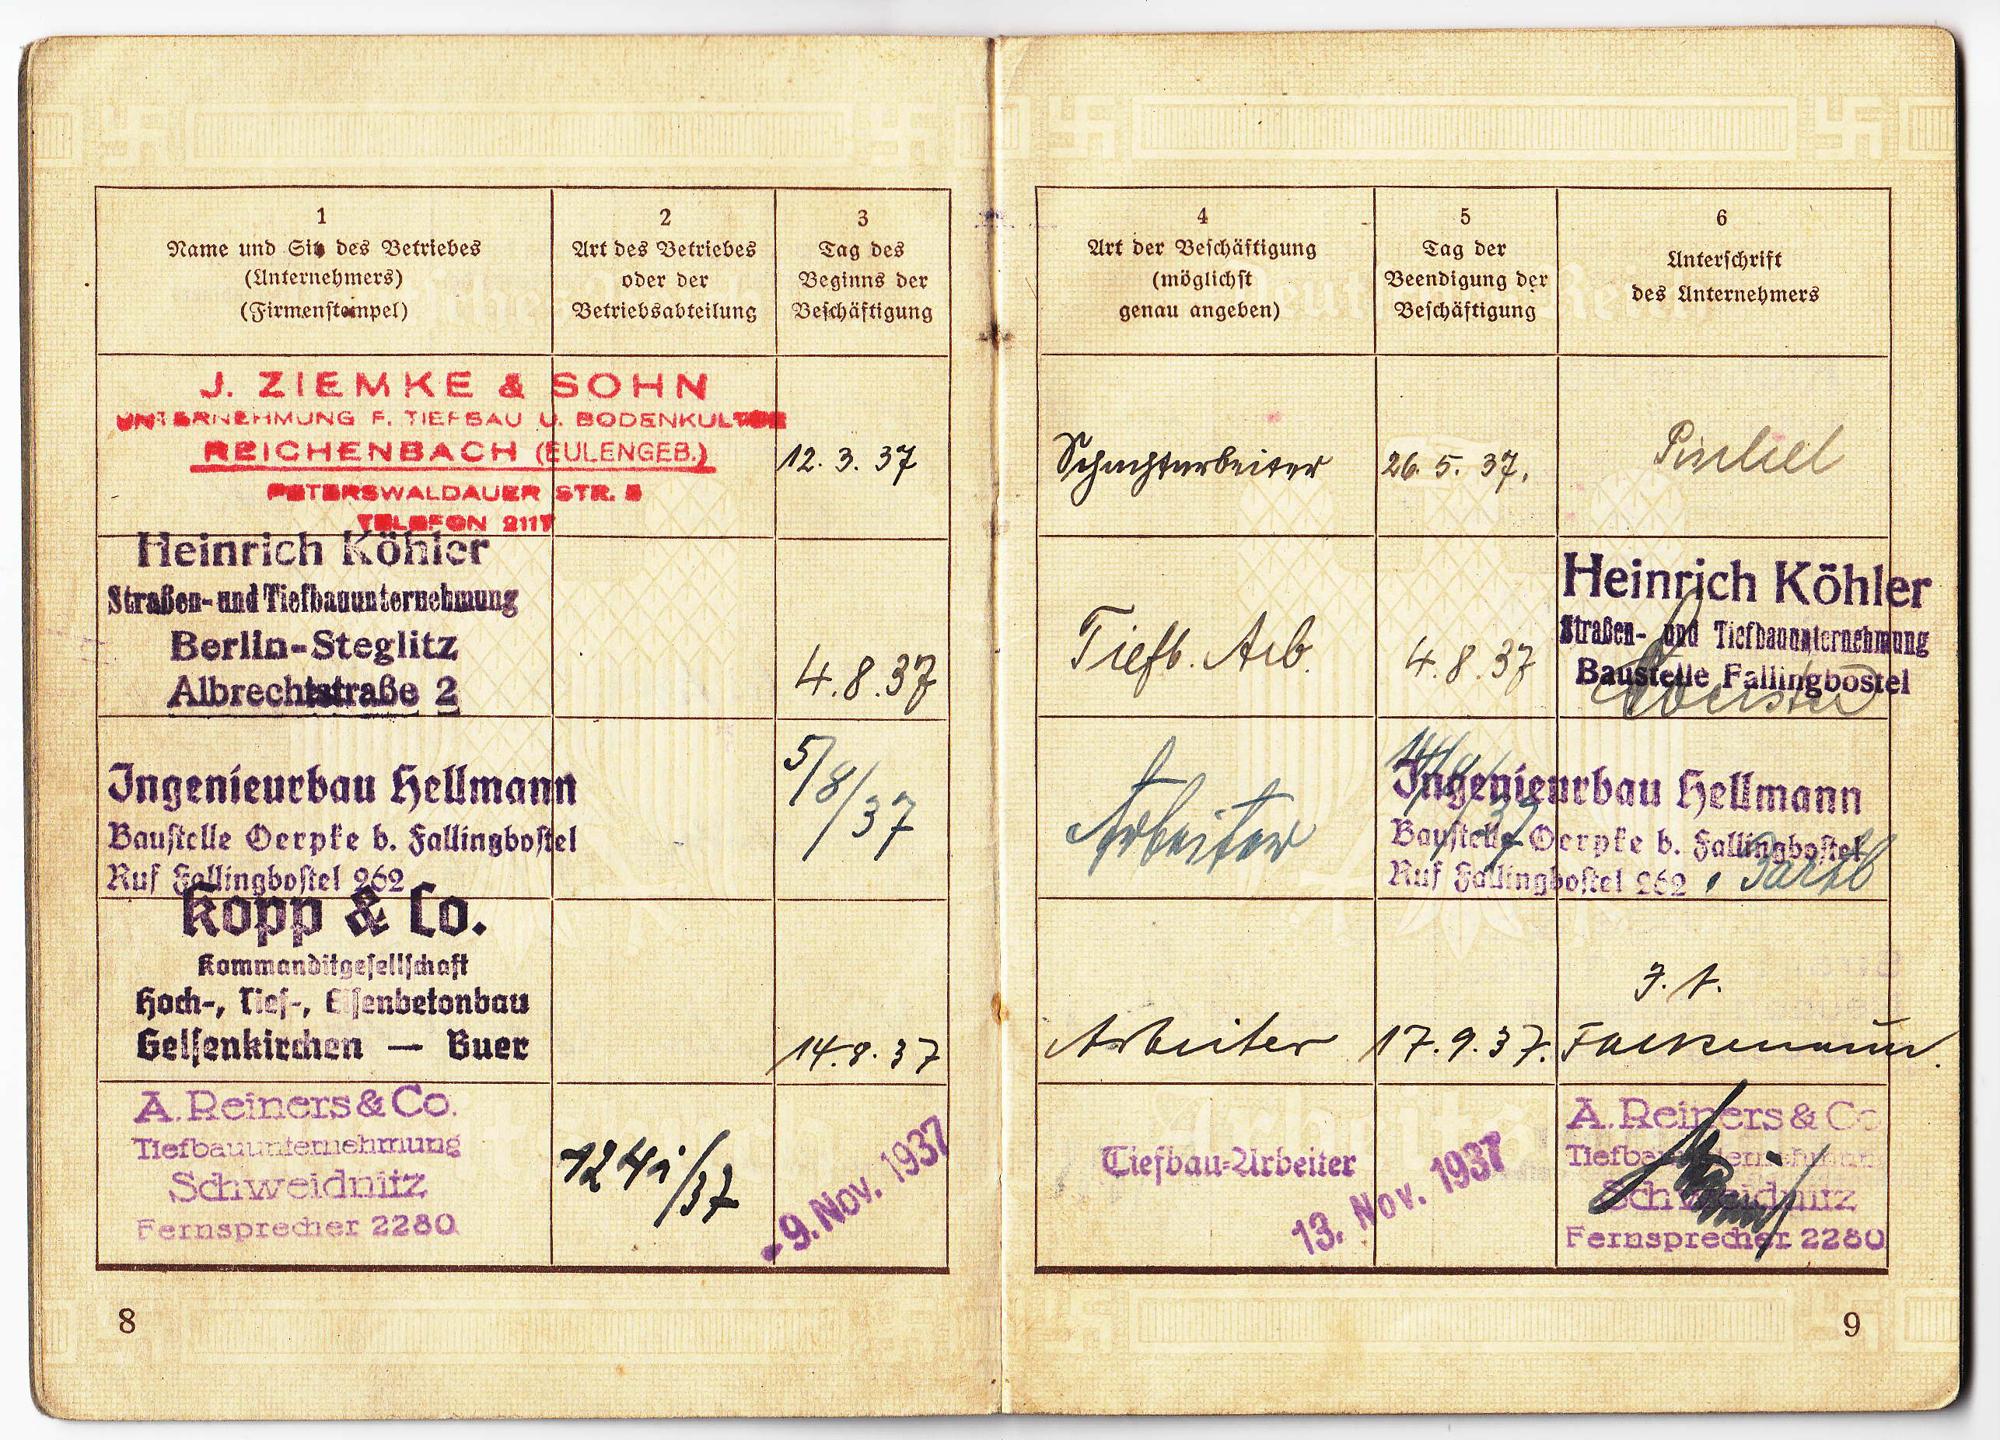 1
Name und Sitz des Betriebes
(Unternehmers)
(Firmenstempel)
2
Art des Betriebes
oder der
Betriebsabteilung
3
Tag des
Beginns der
Beschäftigung
J. ZIEMKE & SOHN
UNTERNEHMUNG F. TIEFBAU U. BODENKULTUR
REICHENBACH (EULENGEB.)
PETERSWALDAUER STR. 5
TELEFON 2117
12. 3. 37
Heinrich Köhler
Straßen- und Tiefbauunternehmung
Berlin-Steglitz
Albrechtstraße 2
4.8.37
Ingenieurbau Hellmann
Baustelle Oerpke b. Fallingbostel
Ruf Fallingbostel 262
5/8/37
Kopp & Co.
Kommanditgesellschaft
Hoch-, Tief-, Eisenbetonbau
Gelsenkirchen — Buer
14.8.37
A. Reiners & Co.
Tiefbauunternehmung
Schweidnitz
Fernsprecher 2280
/37
-9. Nov. 1937
8
4
Art der Beschäftigung
(möglichst
genau angeben)
5
Tag der
Beendigung der
Beschäftigung
6
Unterschrift
des Unternehmers
Schachtarbeiter
26. 5. 37.
Tiefb. Arb.
4.8.37
Heinrich Köhler
Straßen- und Tiefbauunternehmung
Baustelle Fallingbostel
Arbeiter
Ingenieurbau Hellmann
Baustelle Oerpke b. Fallingbostel
Ruf Fallingbostel 262
Arbeiter
17.9.37.
Tiefbau-Arbeiter
13. Nov. 1937
A. Reiners & Co
Tiefbauunternehmung
Schweidnitz
Fernsprecher 2280
9